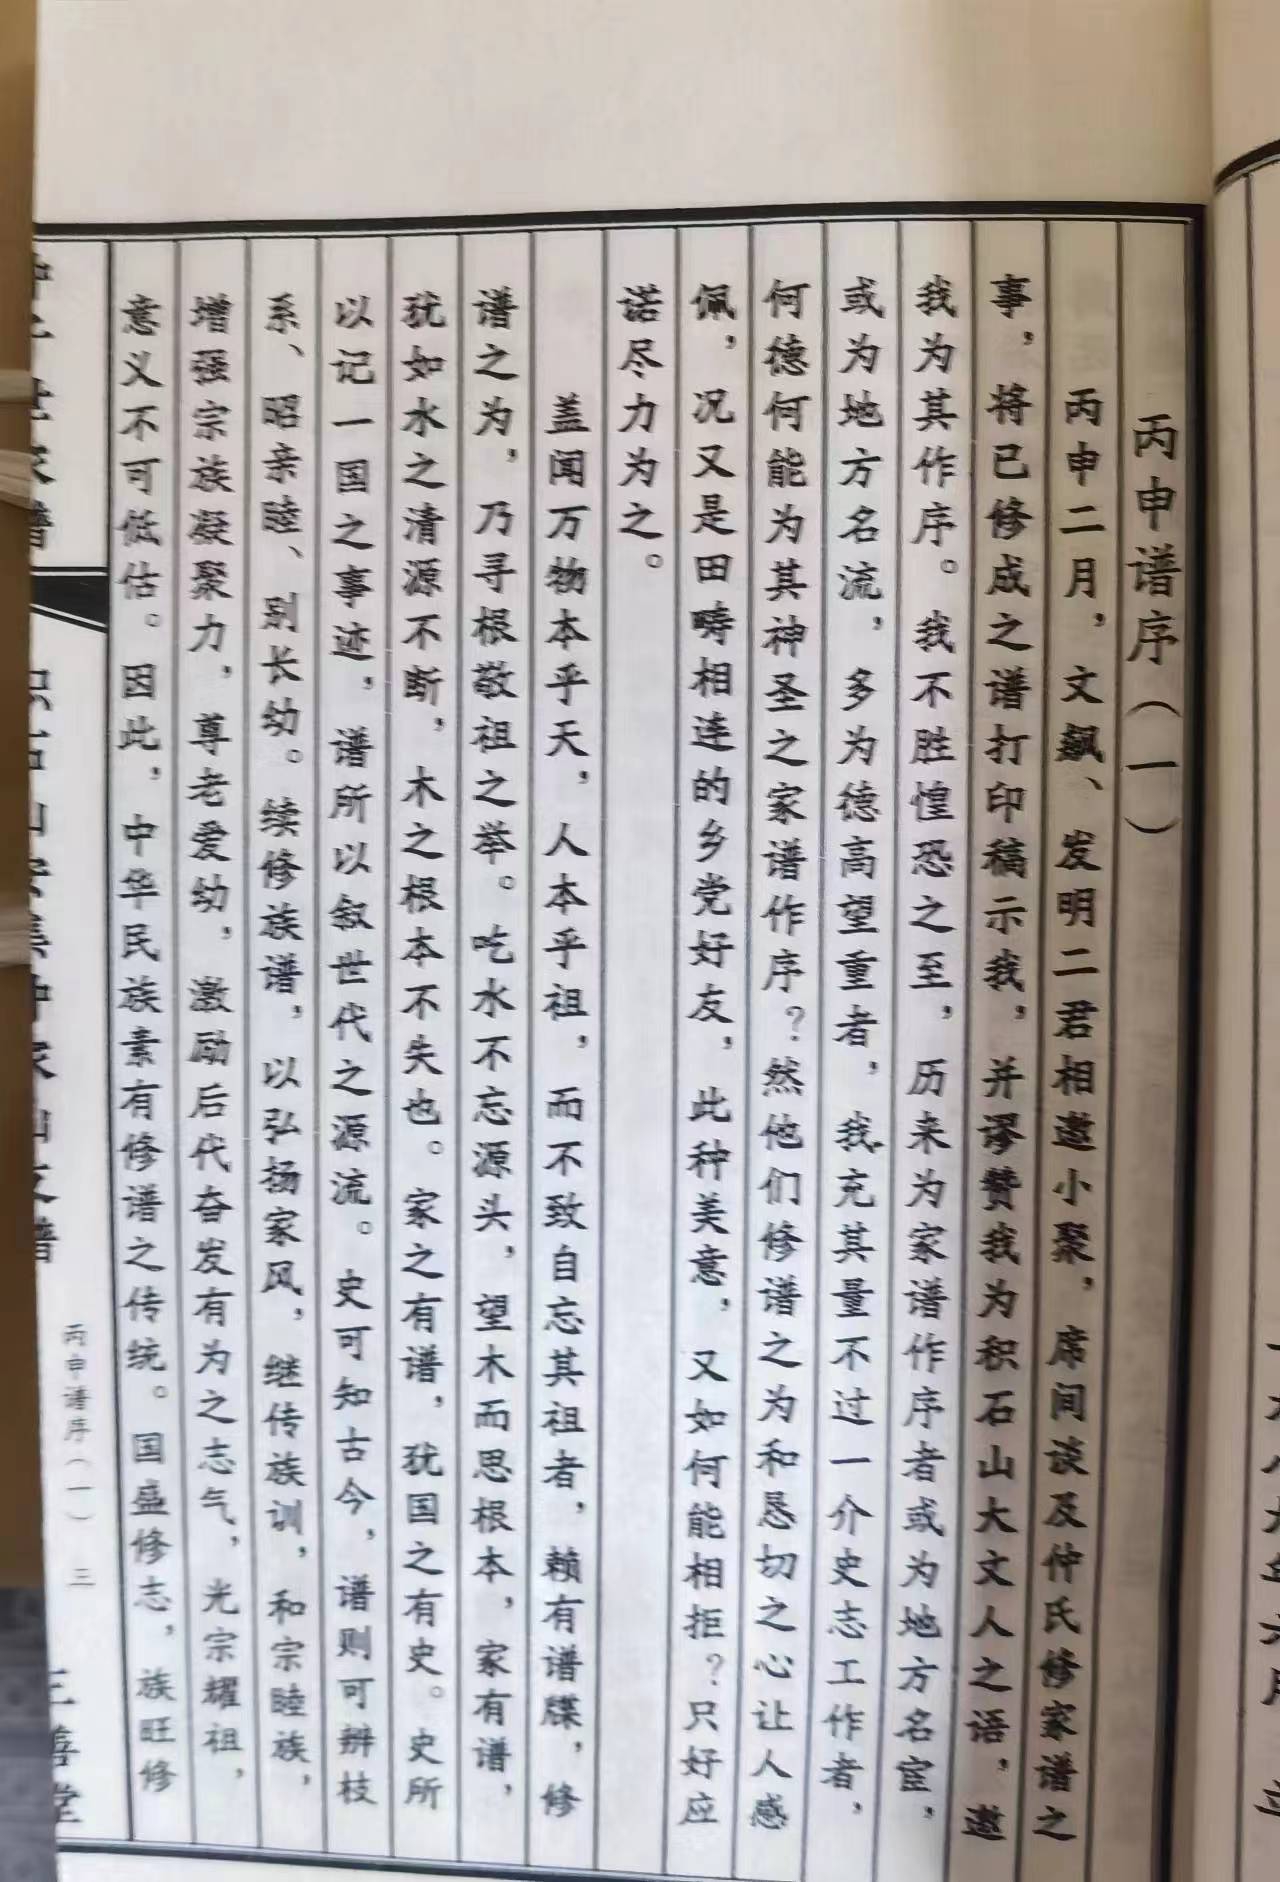 丙申谱序（一）
丙申二月，文飙、发明二君相邀小聚，席间谈及仲氏修家谱之
事，将已修成之谱打印稿示我，并谬赞我为积石山大文人之语，邀
我为其作序。我不胜惶恐之至，历来为家谱作序者或为地方名宦，
或为地方名流，多为德高望重者，我充其量不过一介史志工作者，
何德何能为其神圣之家谱作序？然他们修谱之为和恳切之心让人感
佩，况又是田畴相连的乡党好友，此种美意，又如何能相拒？只好应
诺尽力为之。
盖闻万物本乎天，人本乎祖，而不致自忘其祖者，赖有谱牒，修
谱之为，乃寻根敬祖之举。吃水不忘源头，望木而思根本，家有谱，
犹如水之清源不断，木之根本不失也。家之有谱，犹国之有史。史所
以记一国之事迹，谱所以叙世代之源流。史可知古今，谱则可辨枝
系、昭亲睦、别长幼。续修族谱，以弘扬家风，继传族训，和宗睦族，
增强宗族凝聚力，尊老爱幼，激励后代奋发有为之志气，光宗耀祖，
意义不可低估。因此，中华民族素有修谱之传统。国盛修志，族旺修
丙申谱序（一） 三